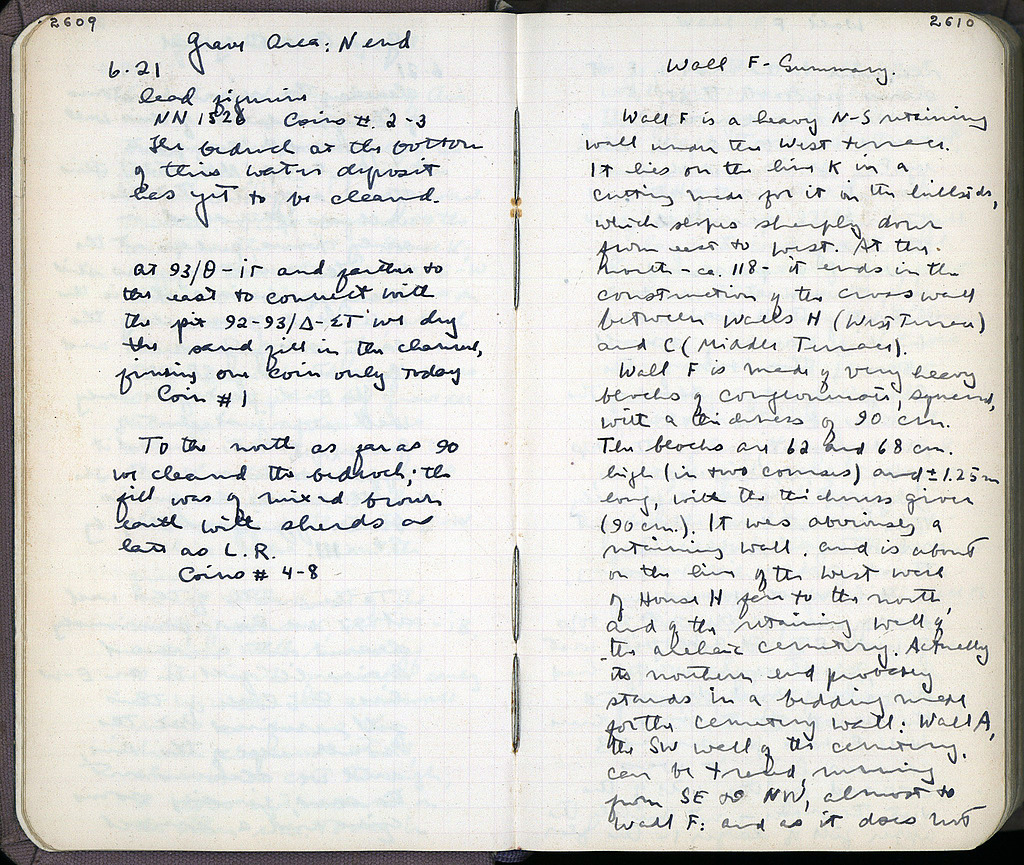 2609
Grave Area: N end
6.21
lead figurine
NN 1528 Coins #. 2-3
The bedrock at the bottom
of this water deposit
has yet to be cleared.
at 93/Θ-ΙΓ and farther to
the east to connect with
the pit 92-93/Δ-ΣΤ we dug
the sand fill in the channel,
finding one coin only today
Coin #1
To the north as far as 90
we cleared the bedrock; the
fill was of mixed brown
earth with sherds as
late as L.R.
Coins # 4-8
2610
Wall F - Summary.
Wall F is a heavy N-S retaining
wall under the West terrace.
It lies on the line K in a
cutting made for it in the hillside,
which slopes sharply down
from east to west. At the
north - ca. 118 - it ends in the
construction of the cross wall
between Walls H (West Terrace)
and C (Middle Terrace).
Wall F is made of very heavy
blocks of conglomerate, squared,
with a thickness of 90 cm.
The blocks are 62 and 68 cm.
high (in two courses) and ±1.25m
long, with the thickness given
(90 cm.). It was obviously a
retaining wall, and is about
on the line of the west wall
of House H far to the north,
and of the retaining wall of
the archaic cemetery. Actually
its northern end probably
stands in a bedding made
for the cemetery wall: Wall A,
the SW wall of the cemetery,
can be traced, running
from SE to NW, almost to
Wall F: and as it does not